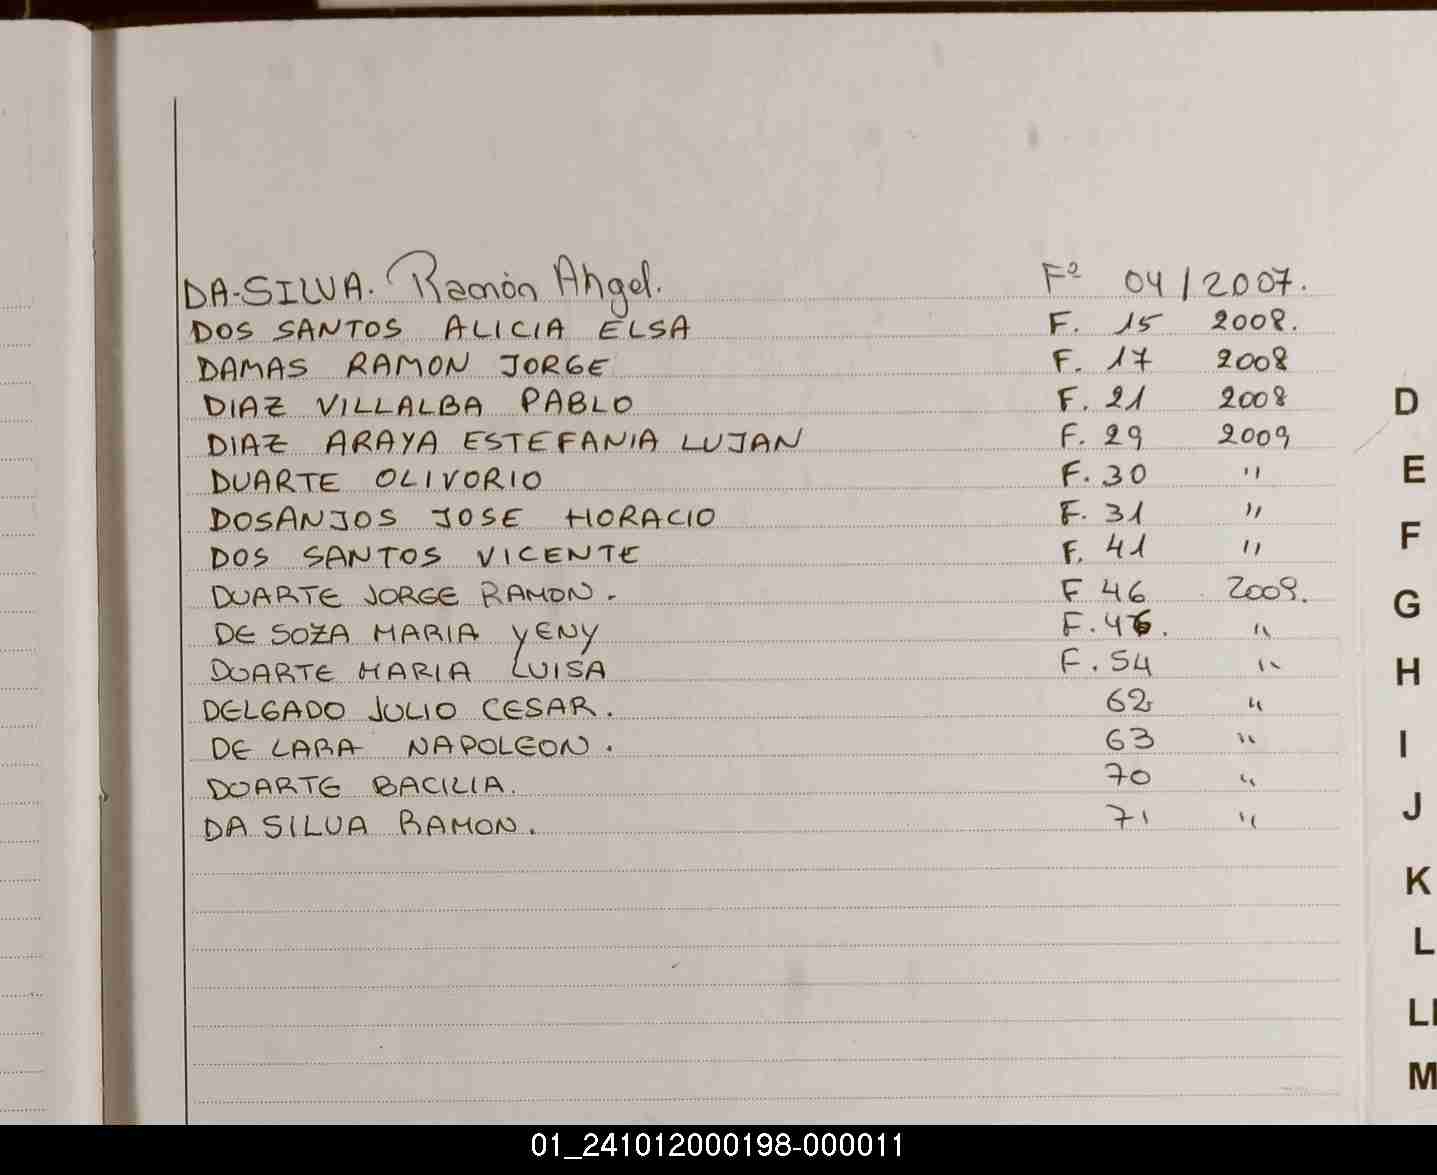 DA-SILVA. Ramón Angel. Fº 04/2007.
DOS SANTOS ALICIA ELSA F. 15 2008.
DAMAS RAMON JORGE F. 17 2008
DIAZ VILLALBA PABLO F. 21 2008
DIAZ ARAYA ESTEFANIA LUJAN F. 29 2009
DUARTE OLIVORIO F. 30 "
DOSANJOS JOSE HORACIO F. 31 "
DOS SANTOS VICENTE F. 41 "
DUARTE JORGE RAMON. F 46 2009.
DE SOZA MARIA YENY F. 46. "
DUARTE MARIA LUISA F. 54 "
DELGADO JULIO CESAR. 62 "
DE LARA NAPOLEON. 63 "
DUARTE BACILIA. 70 "
DA SILVA RAMON. 71 "
D
E
F
G
H
I
J
K
L
Ll
M
01_241012000198-000011